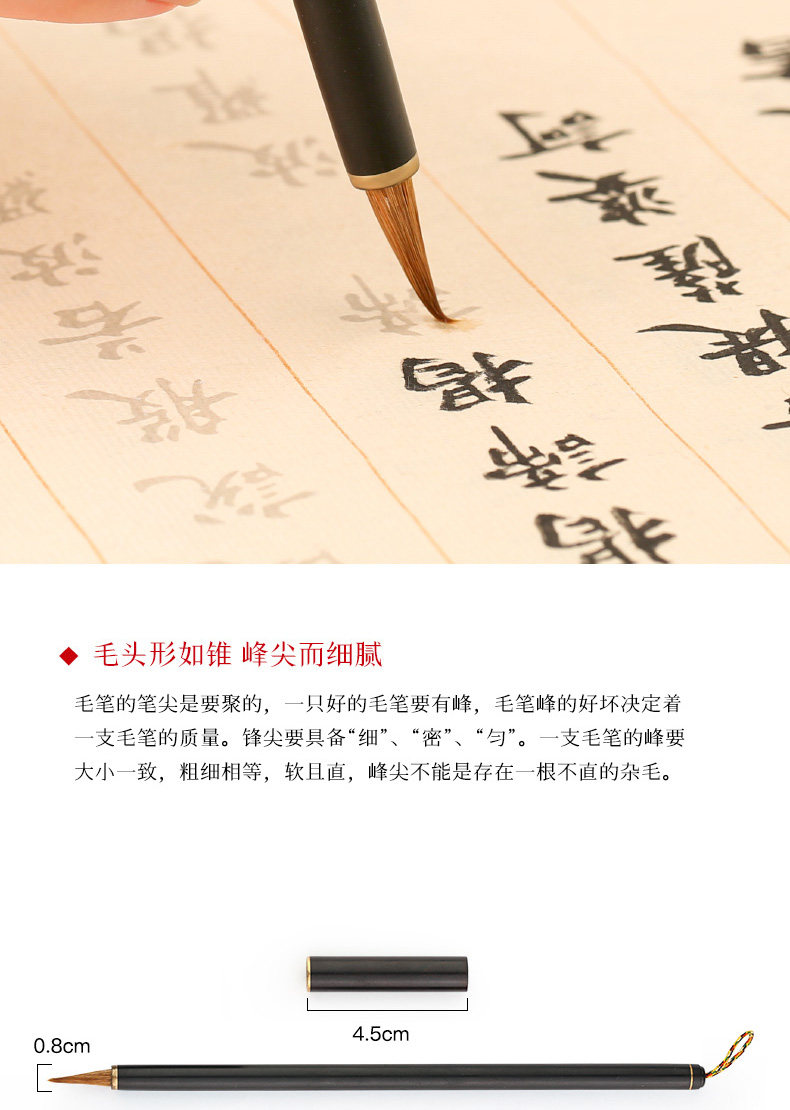 提薩婆訶
揭諦揭諦波羅揭
說般若波羅
毛头形如锥 峰尖而细腻
毛笔的笔尖是要聚的，一只好的毛笔要有峰，毛笔峰的好坏决定着
一支毛笔的质量。锋尖要具备“细”、“密”、“匀”。一支毛笔的峰要
大小一致，粗细相等，软且直，峰尖不能是存在一根不直的杂毛。
4.5cm
0.8cm